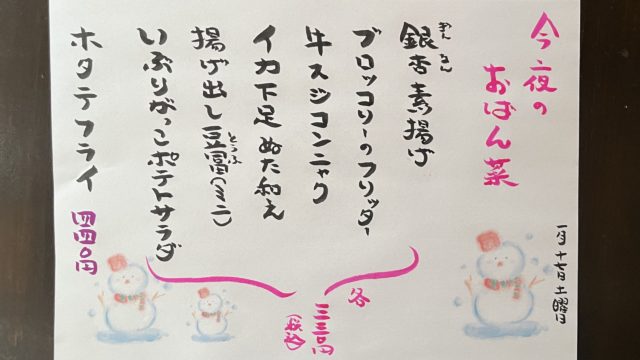 今夜の
おばん菜
一月十七日土曜日
ぎんなん
銀杏素揚げ
ブロッコリーのフリッター
牛スジコンニャク
イカ下足ぬた和え
とうふ
揚げ出し豆富(ミニ)
いぶりがっこポテトサラダ
各
三三〇円
(税込)
ホタテフライ
四四〇円